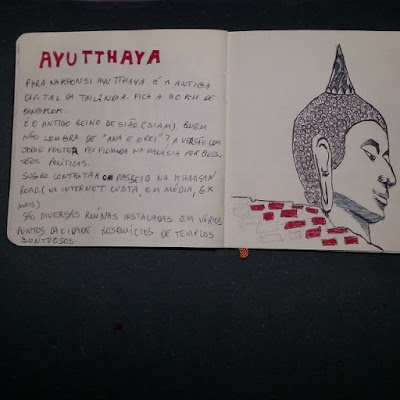 AYUTTHAYA
PHRA NAKHONSI AYUTTHAYA. É A ANTIGA
CAPITAL DA TAILÂNDIA. FICA A 80 KM DE
BANGKOK.
É O ANTIGO REINO DE SIÃO (SIAM). QUEM
NÃO LEMBRA DE "ANA E O REI"? A VERSÃO COM
JODIE FOSTER FOI FILMADA NA MALÁSIA POR
POLÍTICAS.
SUGIRO CONTRATAR O PASSEIO NA KHAOSAN
ROAD. (NA INTERNET CUSTA, EM MÉDIA, 6X
MAIS)
SÃO DIVERSAS RUÍNAS INSTALADAS EM VÁRIOS
PONTOS DA CIDADE. RESQUÍCIOS DE TEMPLOS
SUNTUOSOS.